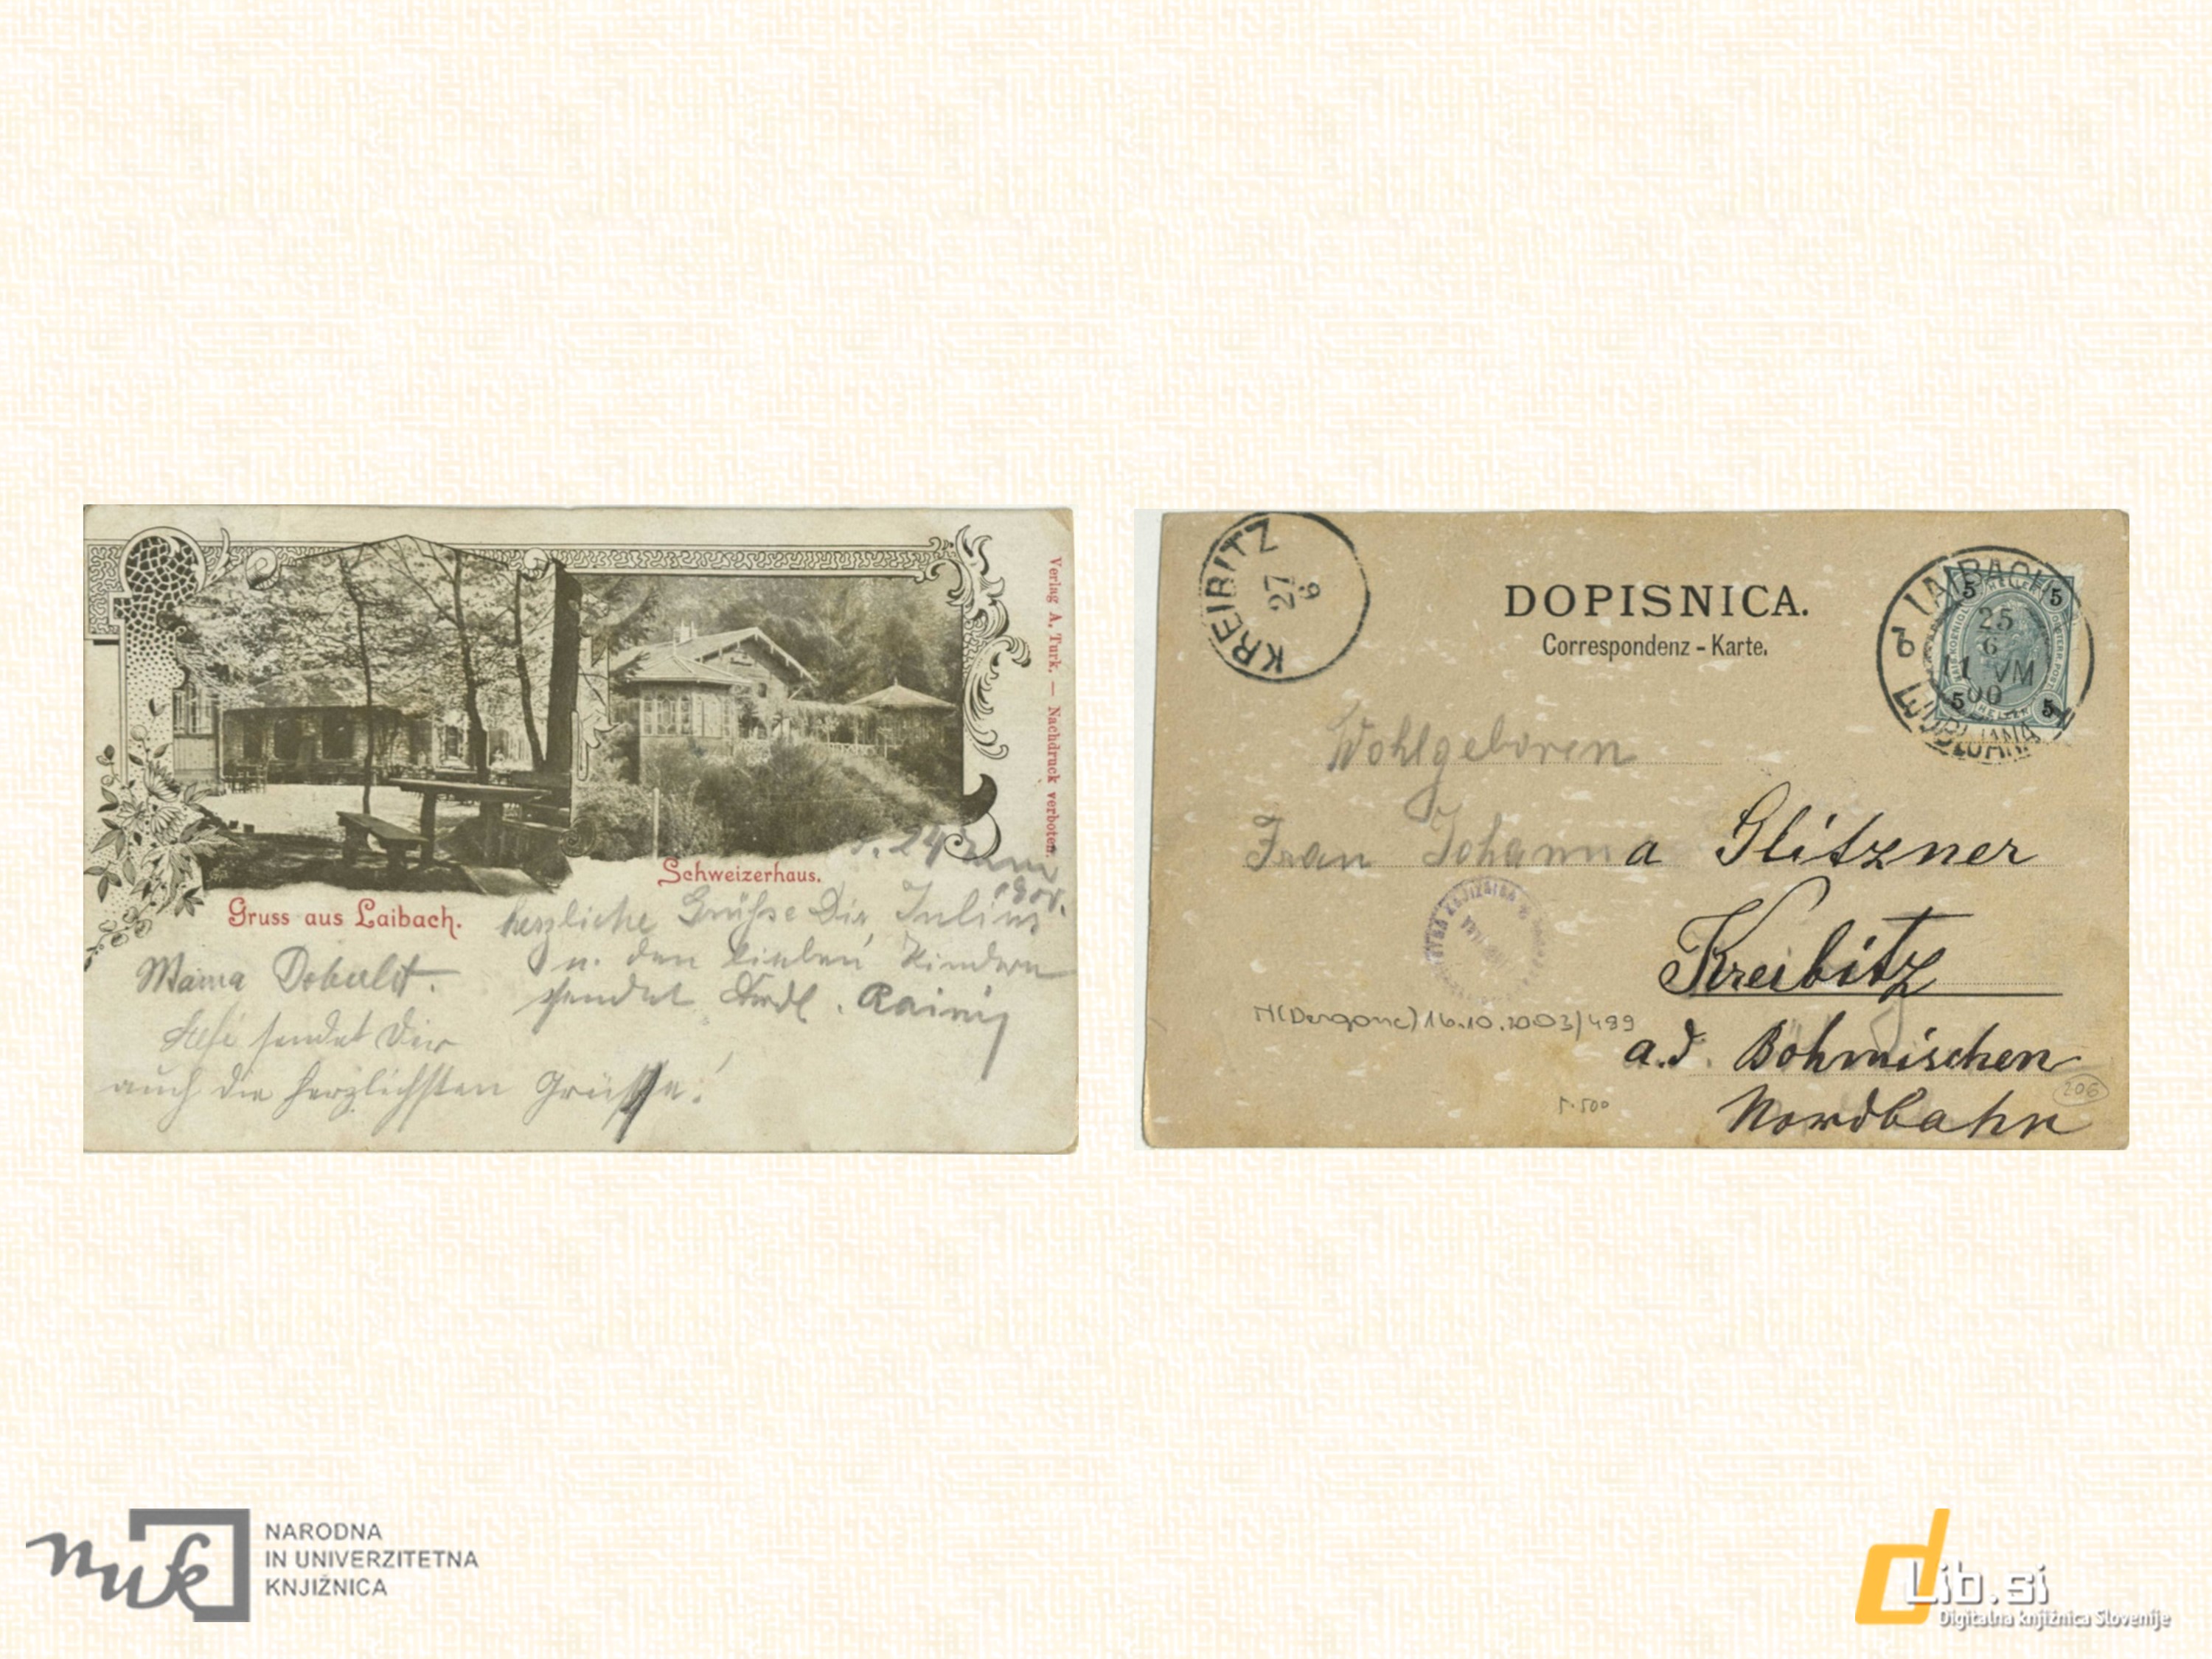 Verlag A. Turk. — Nachdruck verboten.
Schweizerhaus.
Gruss aus Laibach.
24 Juni
herzliche Grüsse Dir, Julius
u. den lieben Kindern
sendet
Mama
sendet Dir
auch die herzlichsten Grüsse!
KREIBITZ
27
6
DOPISNICA.
Correspondenz - Karte.
LAIBACH
25
6
11 VM
00
LJUBLJANA
5 5
5 5
Wohlgeboren
Frau Johanna Glitzner
Kreibitz
a.d. Böhmischen
Nordbahn
N(Dergonc)16.10.2003/489
206
nuk
NARODNA
IN UNIVERZITETNA
KNJIŽNICA
dLib.si
Digitalna knjižnica Slovenije